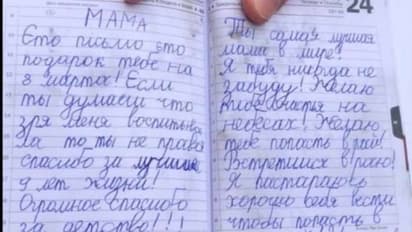 МАМА
Єто письмо это
подарок тебе на
8 марта! Если
ты думаеш что
зря меня воспитыва
ла то ты не права
спасибо за лучшие
9 лет жизни!
Огромное спасибо
за детство!!!
24
Ты самая лучшая
мама в мире!
Я тебя никогда не
забуду! Желаю
на
небесах. Желаю
тебе попасть в рай!
Встретимся в раю!
Я пастараюсь
хорошо себя вести
чтобы попасть в